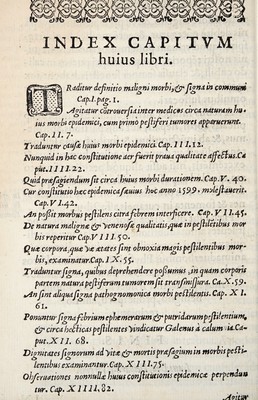 INDEX CAPITVM
huius libri.
TRaditur definitio maligni morbi, & signa in communi
Cap. I. pag. 1.
Agitatur cōtrouersia inter medicos circa naturam hu
ius morbi epidemici, cum primo pestiferi tumores apparuerunt.
Cap. II. 7.
Traduntur causæ huius morbi epidemici Cap. III. 12.
Nunquid in hac constitutione aer fuerit praua qualitate affectus. Ca
put. IIII. 22.
Quid præsagiendum sit circa huius morbi durationem. Cap. V. 40.
Cur constitutio hæc epidemica sæuius hoc anno 1599. molestauerit.
Cap. VI. 42.
An possit morbus pestilens citra febrem interficere. Cap. VII. 45.
De natura maligne & venenosæ qualitatis, quæ in pestilētibus mor
bis reperitur Cap. VIII. 50.
Quæ corpora, quæ ve ætates sint obnoxia magis pestilentibus mor
bis, examinatur. Cap. IX. 55.
Traduntur signa, quibus deprehendere possumus, in quam corporis
partem natura pestiferum tumorem sit transmissura. Ca. X. 59.
An sint aliqua signa pathognomonica morbis pestilentis. Cap. XI.
61.
Ponuntur signa febrium ephemerarum & putridarum pestilentium,
& circa hecticas pestilentes vindicatur Galenus à calumnia. Ca-
put. XII. 68.
Dignitates signorum ad vitæ & mortis præsagium in morbis pesti-
lentibus examinantur. Cap. XIII. 75.
Obseruationes nonnullæ huius constitutionis epidemicæ perpendun
tur. Cap. XIIII. 82.
Agitur